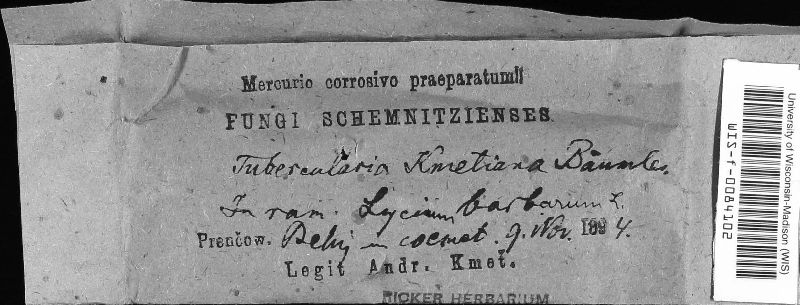 Mercurio corrosivo praeparatum!!
FUNGI SCHEMNITZIENSES.
Tubercularia Kmetiana Bäumler.
In ram. Lycium barbarum L.
Prenčow. in coemet. 9. Nov. 1894.
Legit Andr. Kmeť.
RICKER HERBARIUM
University of Wisconsin-Madison (WIS)
WIS-f-0084102